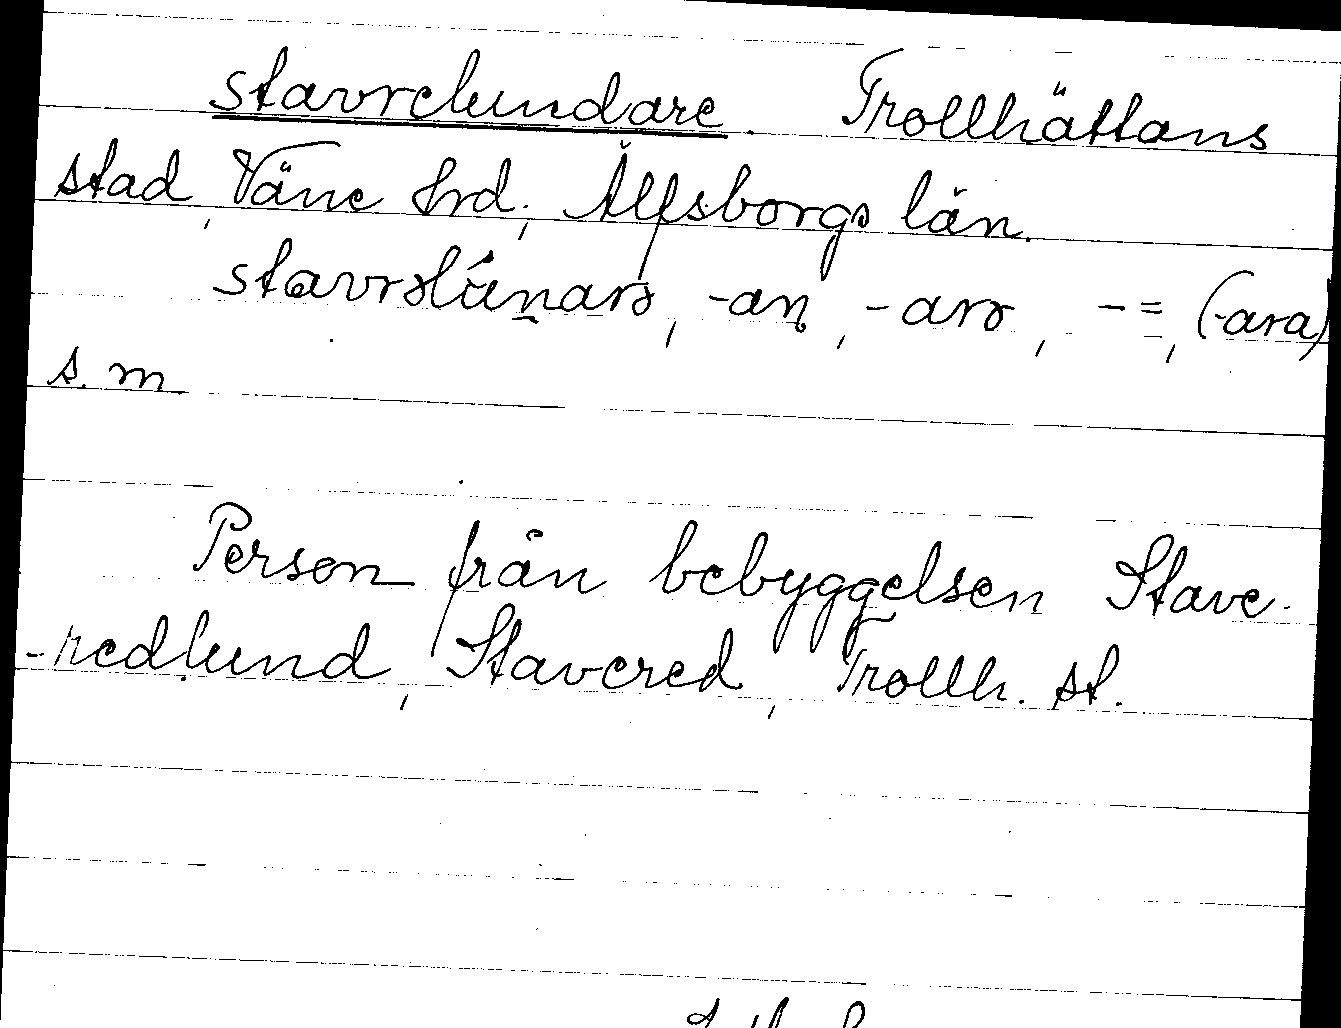 stavrelundare. Trollhättans
stad, Väne hrd; Älfsborgs län.
-an, -arə, -=, (-ara)
s. m.
Person från bebyggelsen Stave-
-redlund, Stavered, Trollh. st.